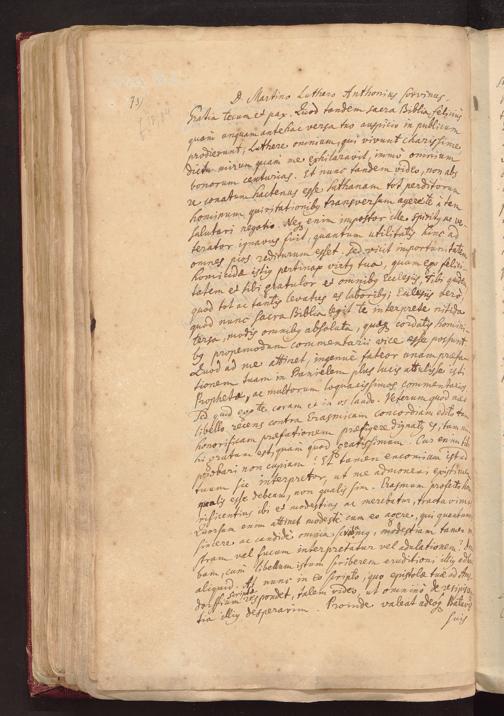 93)
D. Martino Luthero Anthonius Corvinus.
Gratia tecum et pax. Quod tandem sacra Biblia felicius
quam unquam antehac versa tuo auspicio in publicum
prodierunt, Luthere omnium, qui vivunt charissime
dictu mirum quam me exhilaravit, immo omnium
bonorum centurias. Et nunc tandem video, non abs
re conatum hactenus esse Sathanam tot perditorum
hominum transversum agere te a tam
salutari negotio. Neq enim impostor ille Spiritq ac ve-
terator ignavus fuit, quantum utilitatis hinc ad
omnes pios rediturum esset. Sed vicit importunitatem
istis pertinax virtq tua, quam ego felici-
tatem et tibi gratulor et omnibq Ecclesiis, tibi quidem
quod tot ac tantis levatus es laboribq; Ecclesiis vero,
quod nunc sacra Biblia legit te interprete nitida
tersa, modis omnibq absoluta, quaeq cordatis homini-
bq propemodum commentarii vice esse possunt
Quod ad me attinet, ingenue fateor unam praefa-
tionem tuam in Danielem plus lucis attulisse isti
Prophetae, ac multorum loquacissimos commentarios
Sed quid ego te coram et in os laudo. Veterum quod meo
libello recens contra Erasmicam concordiam edito tam
honorificam praefationem praefigere dignatq es, tam mi
hi gratum est, quam quod gratissimum. Cur enim tibi
probari non cupiam? Etsi tamen encomium istud
tuum sic interpretor, ut me admoneri existimem
qualis esse debeam, non qualis sim. Erasmum profecto ho-
norificentius ibi et modestius ac merebatur, tractavimus
Quorsum enim attinet modeste cum eo agere, qui quantumvis
sincere ac candide omnia scribimq, modestiam tamen no-
stram vel fucum interpretatur vel adulationem? 
bam, cum libellum istum scriberem eruditioni illiq
aliquid. At nunc in eo scripto, quo epistolae tuae ad Ams-
dorffium scriptae respondet, talem video, ut omnino de resipiscen-
tia illiq desperarim. Proinde valeat adeoq Batavis
suis